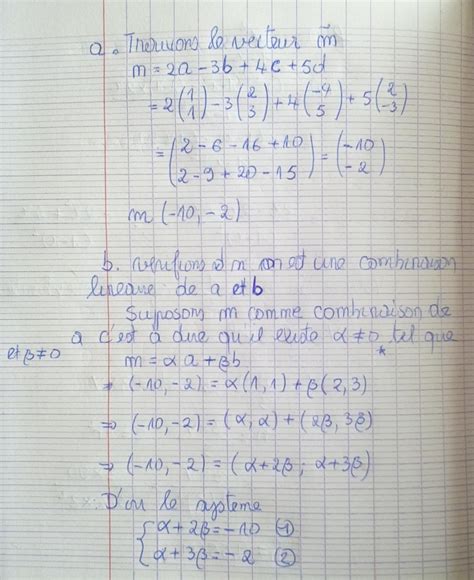 a. Trouvons le vecteur m⃗
m = 2a - 3b + 4c + 5d
= 2(1 1) - 3(2 3) + 4(-4 5) + 5(2 -3)
= (2 - 6 - 16 + 10
2 - 9 + 20 - 15) = (-10 -2)
m (-10, -2)
b. verifions si m est une combinaison
lineaire de a et b
Suposons m comme combinaison de
a c'est à dire qu'il existe α≠0 tel que
et β≠0
m = α a + β b
⇒ (-10, -2) = α(1, 1) + β(2, 3)
⇒ (-10, -2) = (α, α) + (2β, 3β)
⇒ (-10, -2) = (α + 2β ; α + 3β)
D'ou le systeme
{ α + 2β = -10 ①
α + 3β = -2 ②